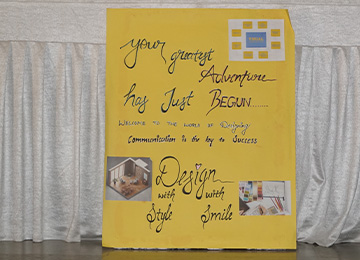 your greatest
Adventure
has Just BEGUN.......
WELCOME TO THE WORLD OF Designing
Communication is the key to SUCCESS
Design
with with
Style Smile